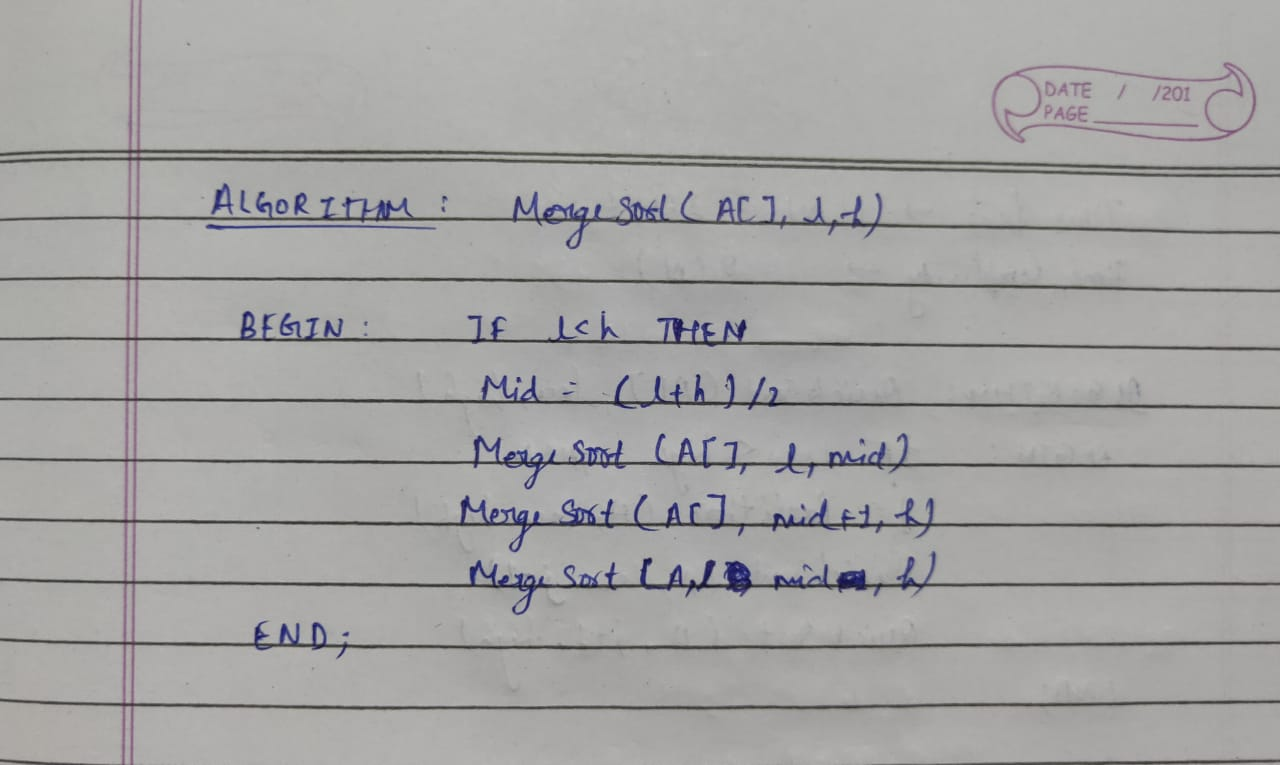 DATE / /201
PAGE
ALGORITHM : Merge Sort ( A[ ], l, h)
BEGIN : IF l<h THEN
Mid = (l+h)/2
Merge Sort (A[ ], l, mid)
Merge Sort (A[ ], mid+1, h)
Merge Sort (A, l mid, h)
END;